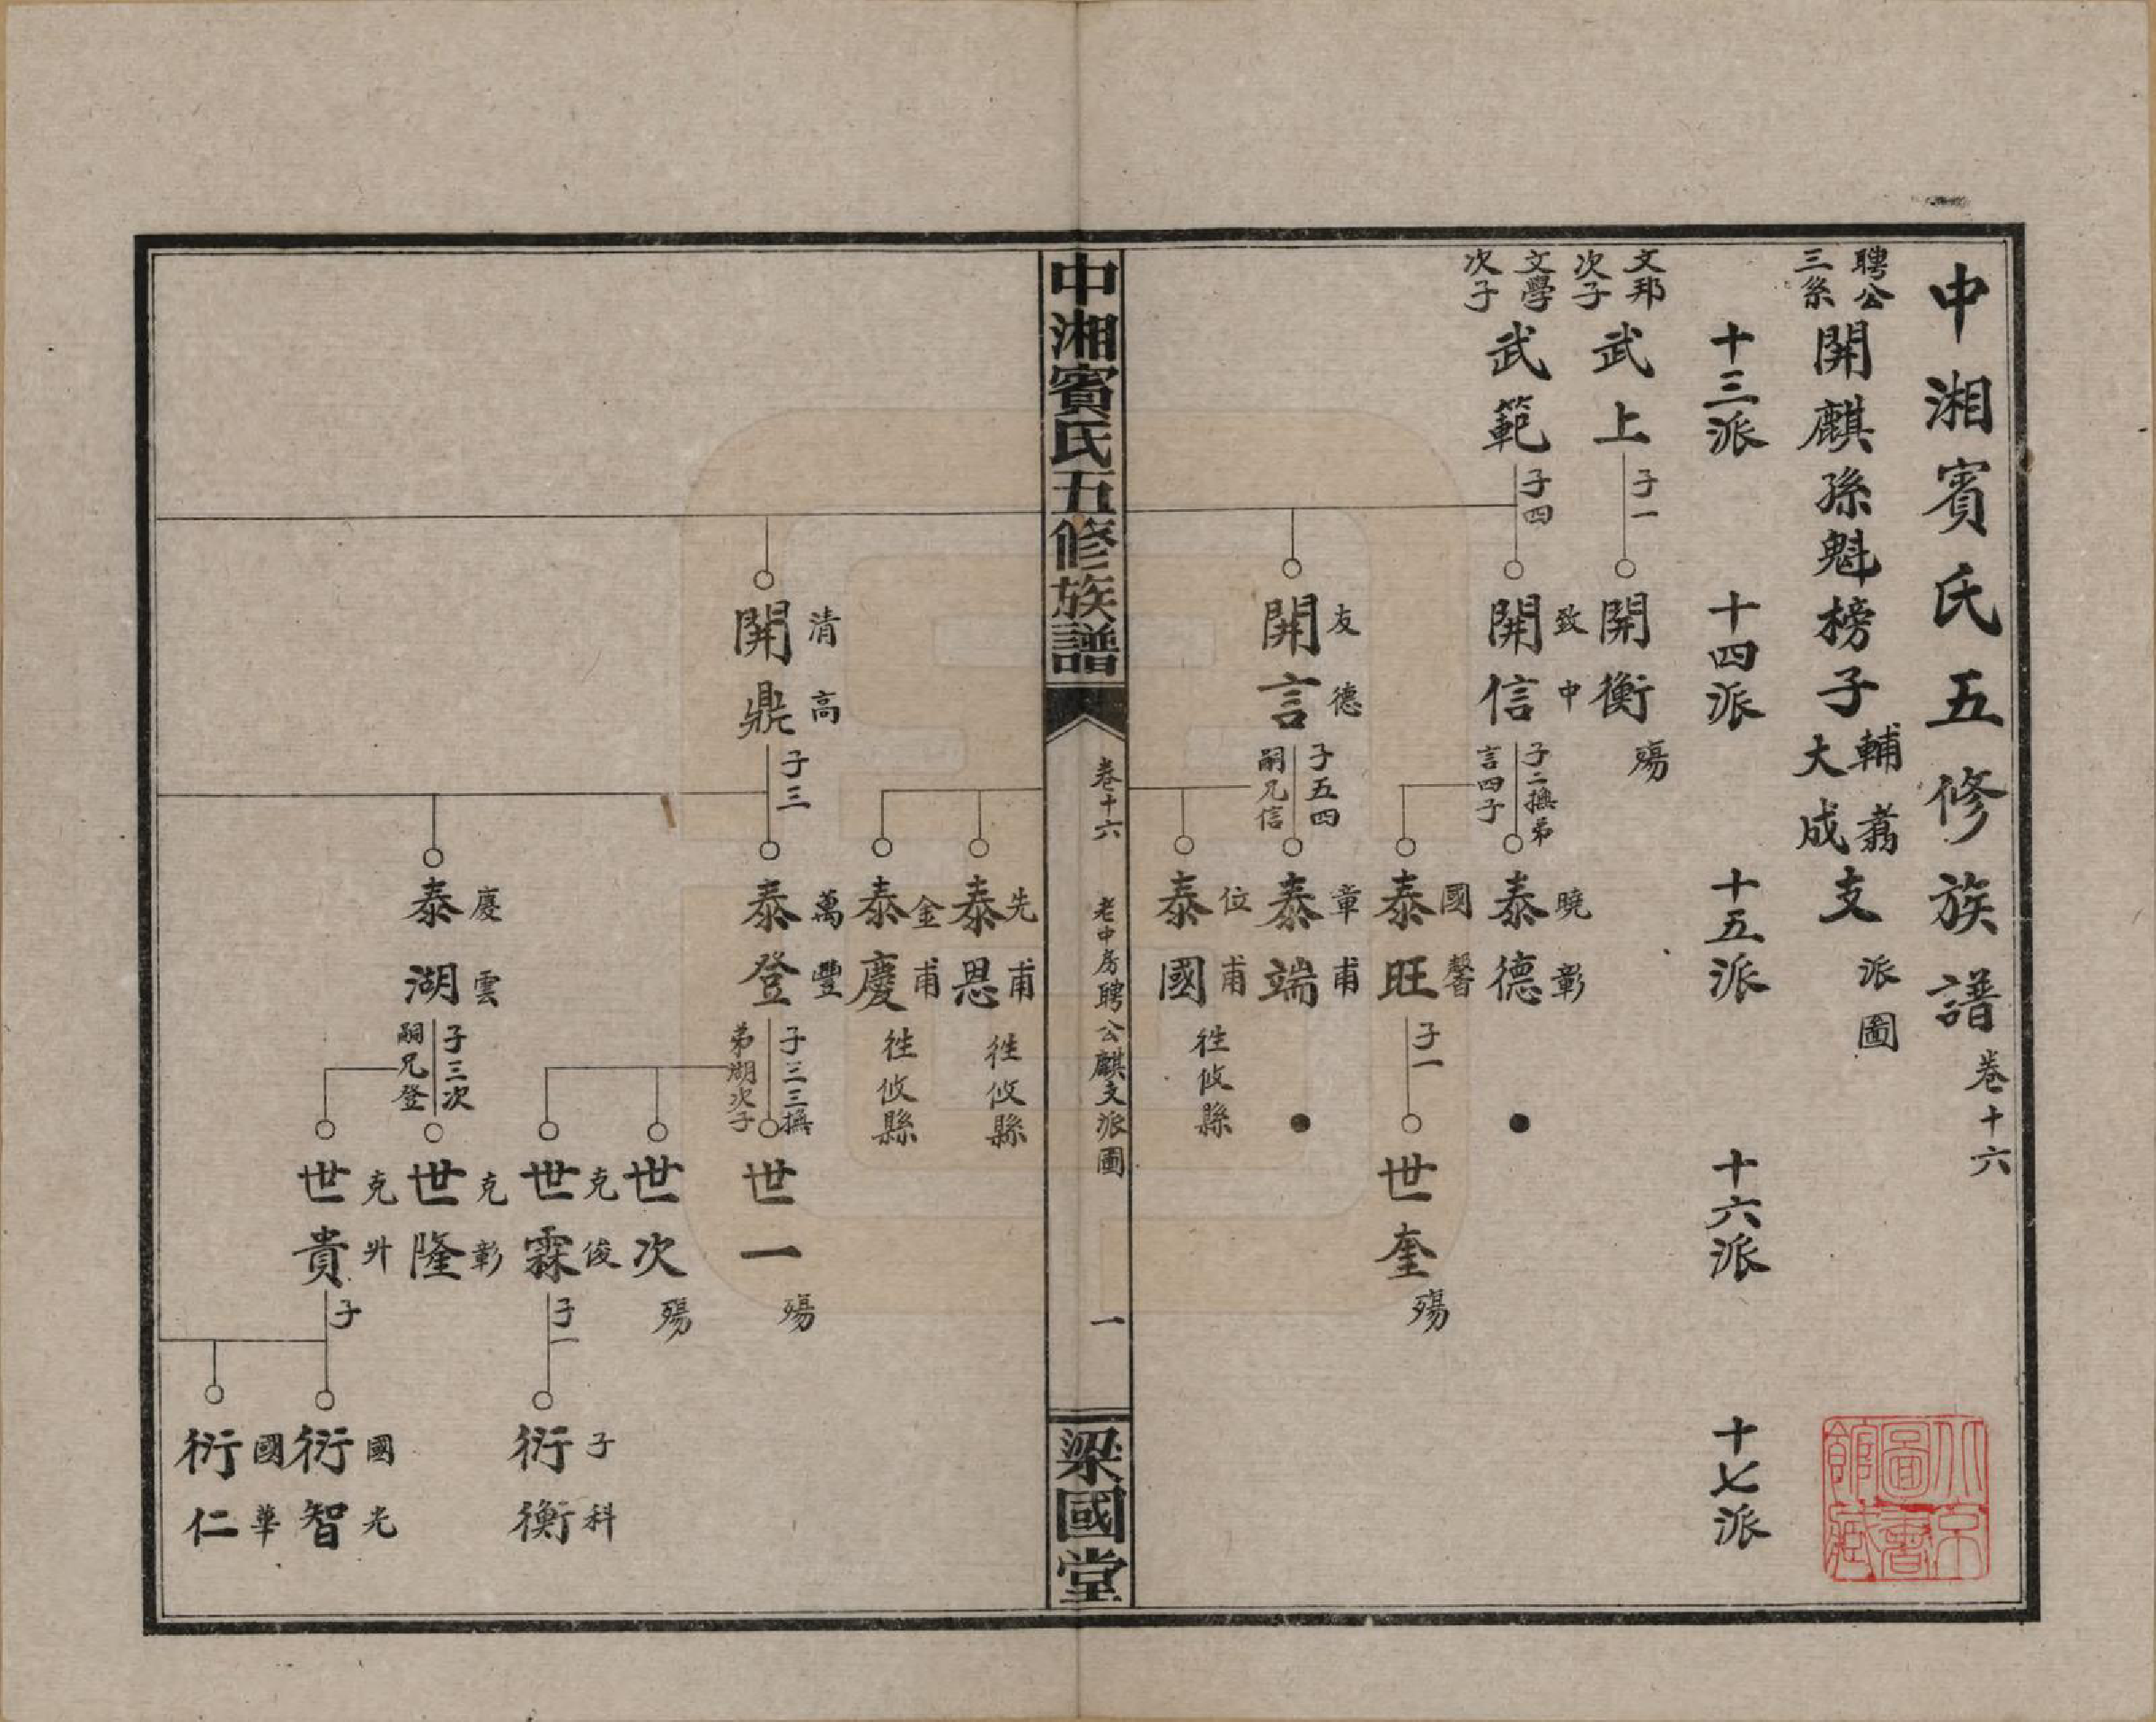 中湘賓氏五修族譜卷十六
聘公三系開麒孫魁榜子輔翥大成支派圖
十三派
十四派
十五派
十六派
十七派
文邦次子武上子一
開衡殤
文學次子武範子四
開信致中子二撫弟言四子
泰德曉彰
泰旺國馨子一
世奎殤
開言友德子五四嗣兄信
泰端章甫
泰國位甫徃攸縣
中湘賓氏五修族譜
卷十六
老中房聘公麒支派圖
一
梁國堂
泰恩先甫徃攸縣
泰慶金甫徃攸縣
開鼎清高子三
泰登萬豐子三三撫弟湖次子
世一殤
世次殤
世霖克俊子一
衍衡子科
泰湖慶雲子三次嗣兄登
世隆克彰
世貴克升子
衍智國光
衍仁國華
北京圖書館藏